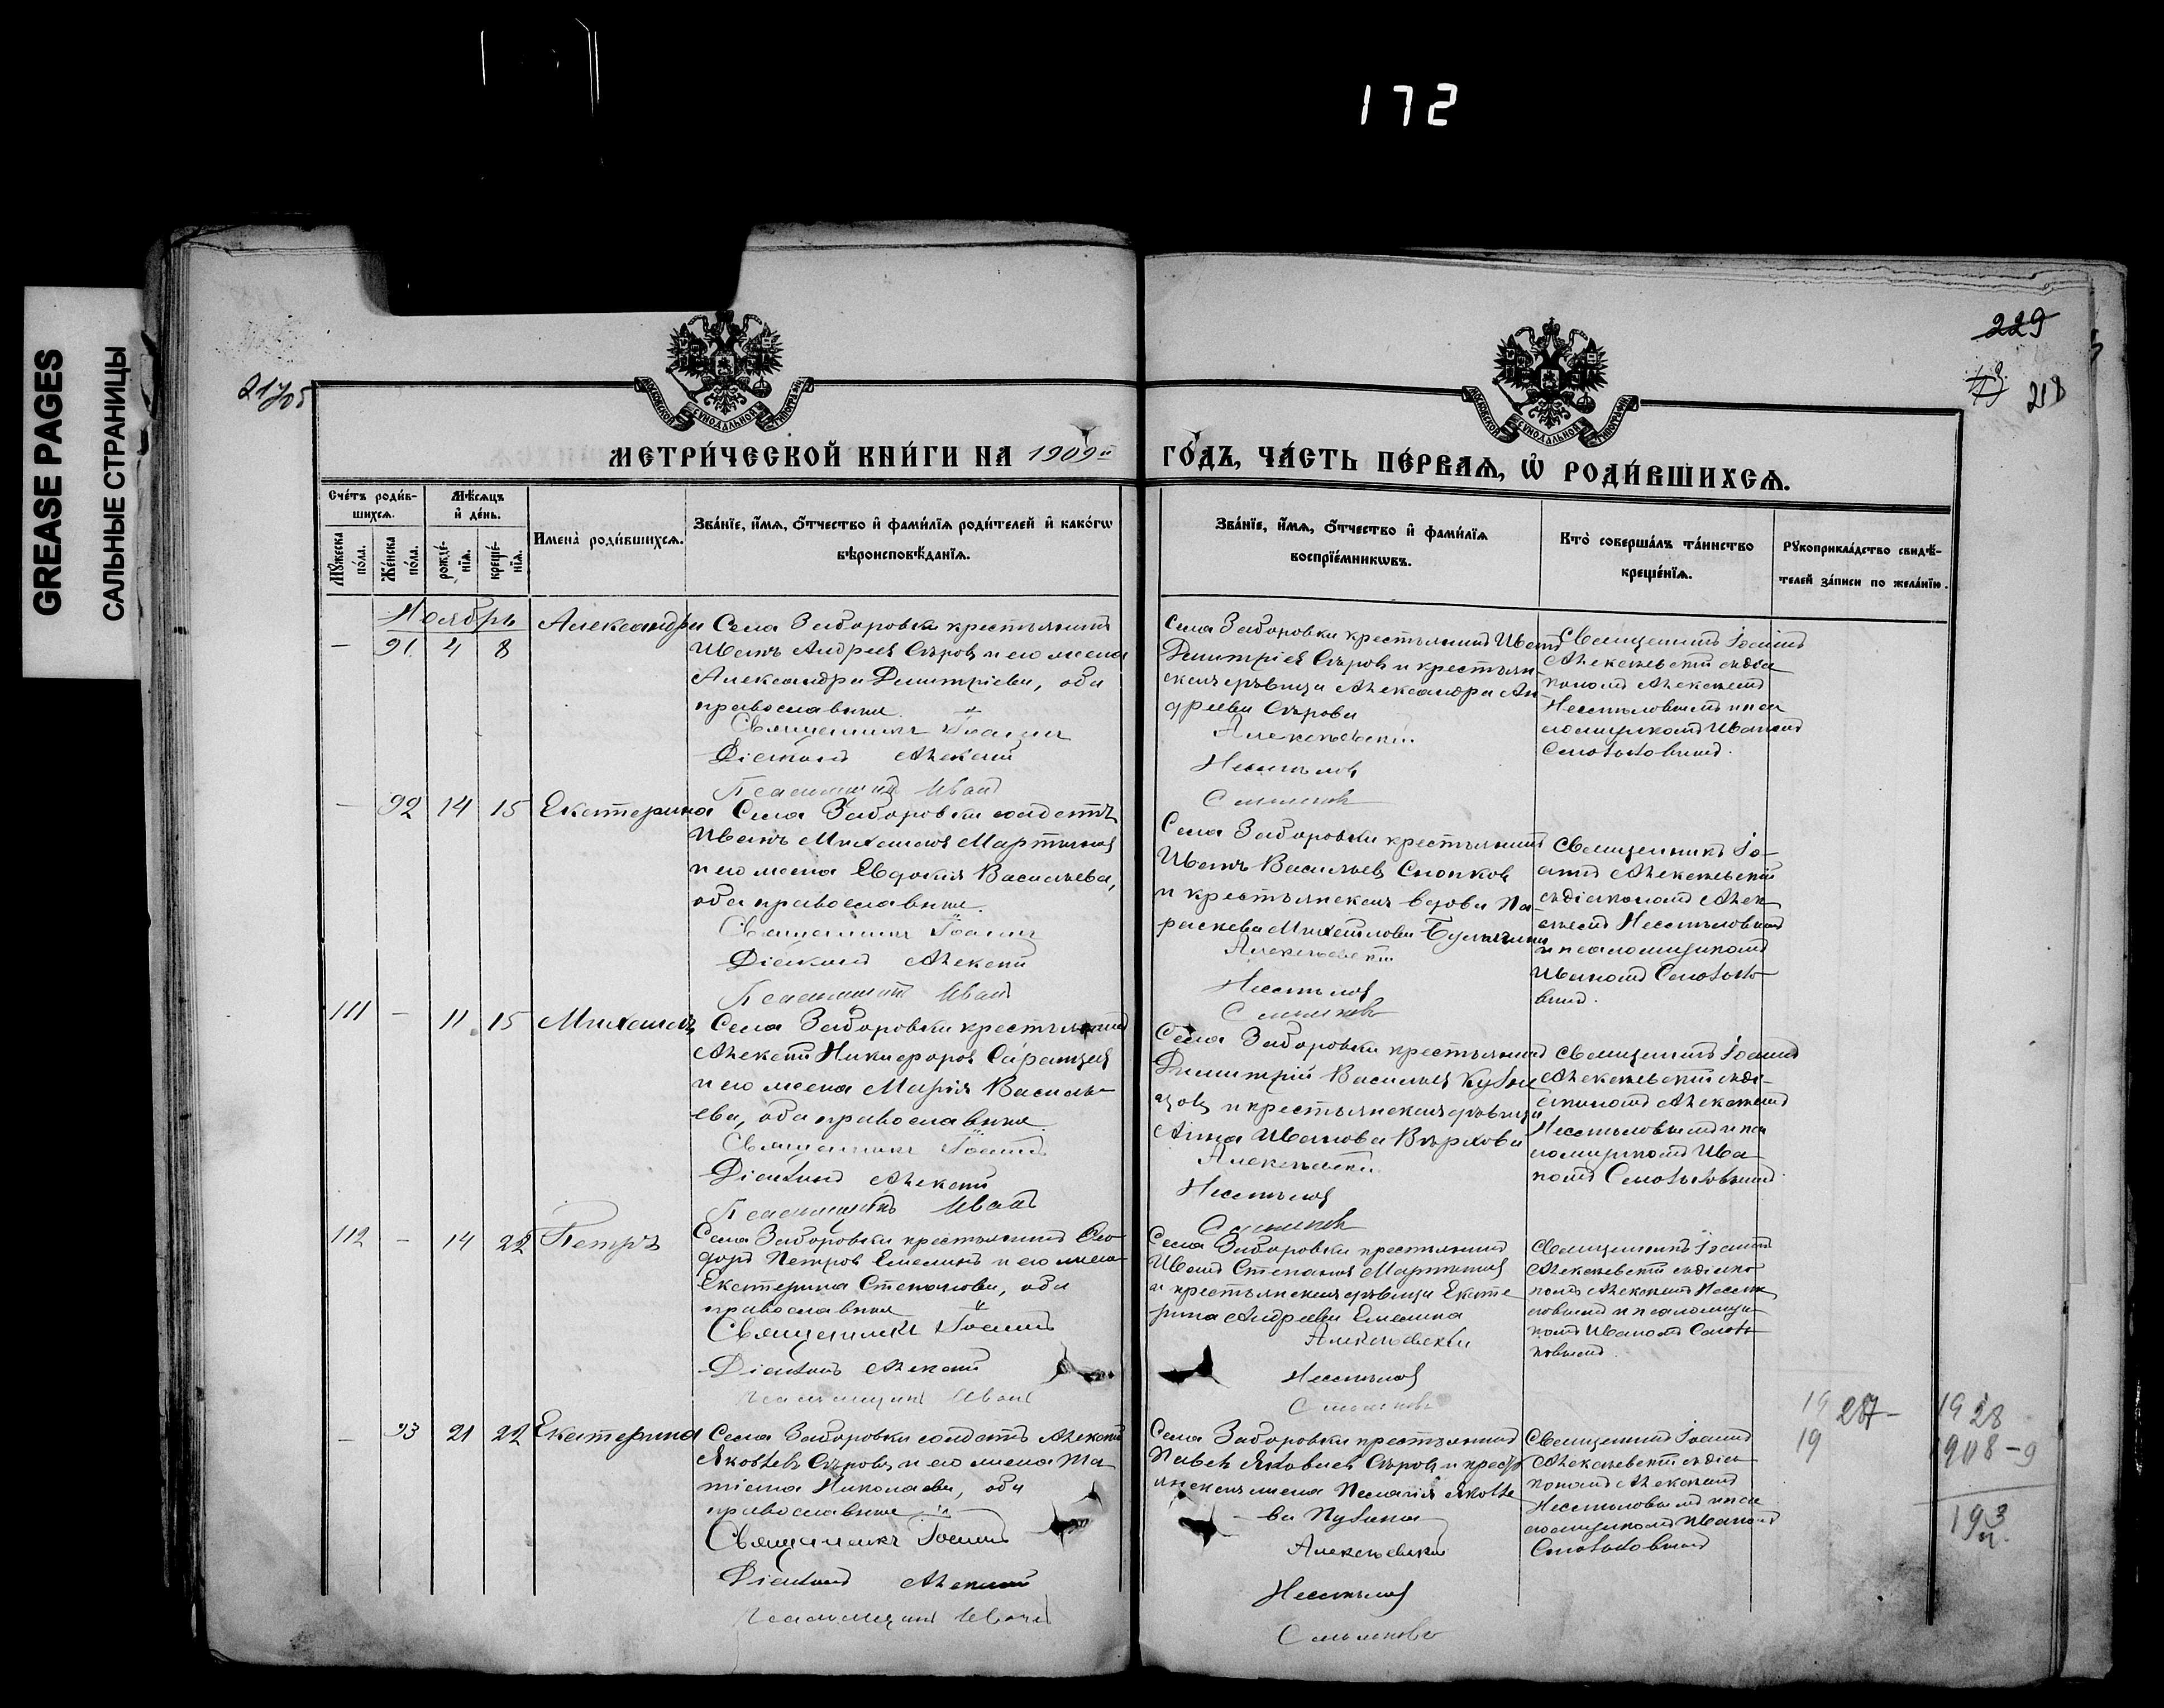 172
GREASE PAGES
САЛЬНЫЕ СТРАНИЦЫ
229
218
МЕТРИ́ЧЕСКОЙ КНИ́ГИ НА 1909й ГО́ДЪ, ЧА́СТЬ ПЕ́РВАѦ, Ѡ҆ РОДИ́ВШИХСѦ.
Сче́тъ роди́в-
шихсѧ.
Мѣ́сѧцъ
и҆ де́нь.
Мꙋ́жеска
по́ла.
Же́нска
по́ла.
рожде́-
нїѧ.
креще́-
нїѧ.
Имена̀ роди́вшихсѧ.
Зва́нїе, и҆́мѧ, ѻ҆́тчество и҆ фами́лїѧ роди́телей и҆ како́гѡ
вѣроисповѣ́данїѧ.
Зва́нїе, и҆́мѧ, ѻ҆́тчество и҆ фами́лїѧ
воспрїе́мникѡвъ.
Кто̀ соверша́лъ та́инство
креще́нїѧ.
Рꙋкоприкла́дство свидѣ́-
телей за́писи по жела́нїю.
Ноябрь
— 91 4 8
Александра
Села Заборовки крестьянинъ
Иванъ Андреевъ Съровъ и его жена
Александра Димитріева, оба
православные
Священникъ Іоаннъ
Діаконъ Алексѣй
Псаломщикъ Иванъ
Села Заборовки крестьянинъ Иванъ
Димитріевъ Съровъ и крестьян-
ская дѣвица Александра Ан-
дреева Сърова
Алексѣевскій
Несмѣловъ
Священникъ Іоаннъ
Алексѣевскій съ діа-
кономъ Алексѣемъ
Несмѣловымъ и пса
ломщикомъ Иваномъ
— 92 14 15
Екатерина
Села Заборовки солдатъ
Иванъ Михаиловъ Мартыновъ
и его жена Евдокія Васильева,
оба православные.
Священникъ Іоаннъ
Діаконъ Алексѣй
Псаломщикъ Иванъ
Села Заборовки крестьянинъ
Иванъ Васильевъ Снопковъ
и крестьянская вдова Па-
раскева Михаилова
Алексѣевскій
Несмѣловъ
Священникъ Іо-
аннъ Алексѣевскій
съ діакономъ Алек-
сѣемъ Несмѣловымъ
и псаломщикомъ
Иваномъ
111 — 11 15
Михаилъ
Села Заборовки крестьянинъ
Алексѣй Никифоровъ Саранцевъ
и его жена Марія Василь-
ева, оба православные.
Священникъ Іоаннъ
Діаконъ Алексѣй
Псаломщикъ Иванъ
Села Заборовки крестьянинъ
Димитрій Васильевъ Кузне
цовъ и крестьянская дѣвица
Анна Иванова
Алексѣевскій
Несмѣловъ
Священникъ Іоаннъ
Алексѣевскій съ ді-
акономъ Алексѣемъ
Несмѣловымъ и пса
ломщикомъ Ива-
номъ
112 — 14 22
Петръ
Села Заборовки крестьянинъ Ѳео-
доръ Петровъ Емелинъ и его жена
Екатерина Степанова, оба
православные
Священникъ Іоаннъ
Діаконъ Алексѣй
Псаломщикъ Иванъ
Села Заборовки крестьянинъ
Иванъ Степановъ Мартыновъ
и крестьянская дѣвица Екате
рина Андреева Емелина
Алексѣевскій
Несмѣловъ
Священникъ Іоаннъ
Алексѣевскій съ діако-
номъ Алексѣемъ Несмѣ
ловымъ и псаломщи-
комъ Иваномъ
— 93 21 22
Екатерина
Села Заборовки солдатъ Алексѣй
Яковлевъ Съровъ и его жена Та-
тіана Николаева, оба
православные
Священникъ Іоаннъ
Діаконъ Алексѣй
Псаломщикъ Иванъ
Села Заборовки крестьянинъ
Павелъ Яковлевъ Съровъ и крест
янская жена Пелагія Яковле
ва
Алексѣевскій
Несмѣловъ
Священникъ Іоаннъ
Алексѣевскій съ діа-
кономъ Алексѣемъ
Несмѣловымъ и пса
ломщикомъ Иваномъ